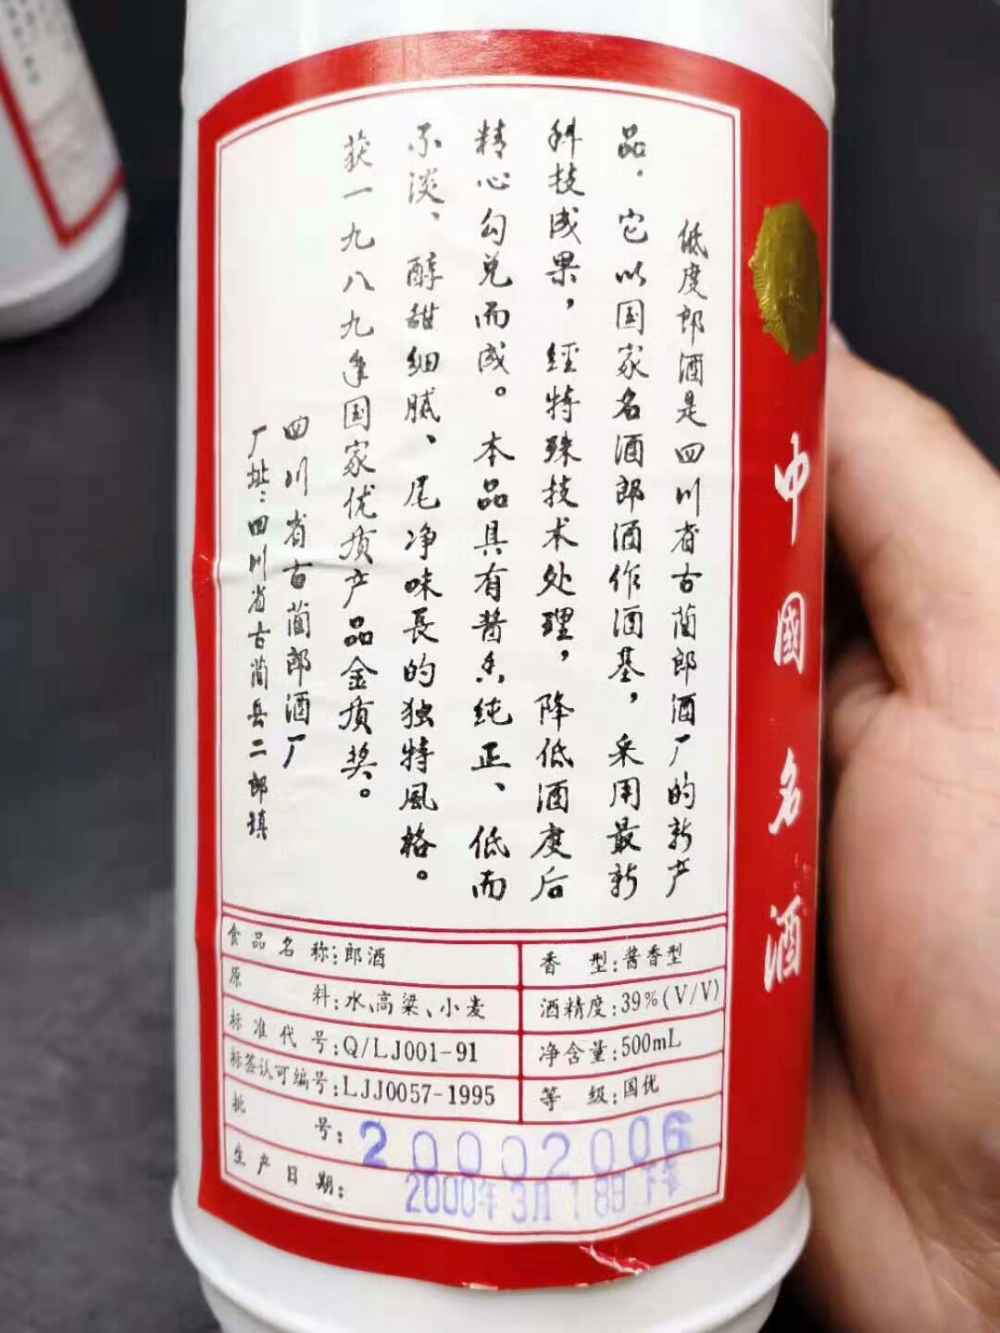 低度郎酒是四川省古蔺郎酒厂的新产
品．它以国家名酒郎酒作酒基，采用最新
科技成果，经特殊技术处理，降低酒度后
精心勾兑而成。本品具有酱香纯正、低而
不淡、醇甜细腻、尾净味長的独特風格。
获一九八九年国家优质产品金质奖。
四川省古蔺郎酒厂
厂址：四川省古蔺县二郎镇
中國名酒
食品名称：郎酒
香型：酱香型
原料：水、高粱、小麦
酒精度：39%(V/V)
标准代号：Q/LJ001-91
净含量：500mL
标签认可编号：LJJ0057-1995
等级：国优
批号：20002006
生产日期：2000年3月18日